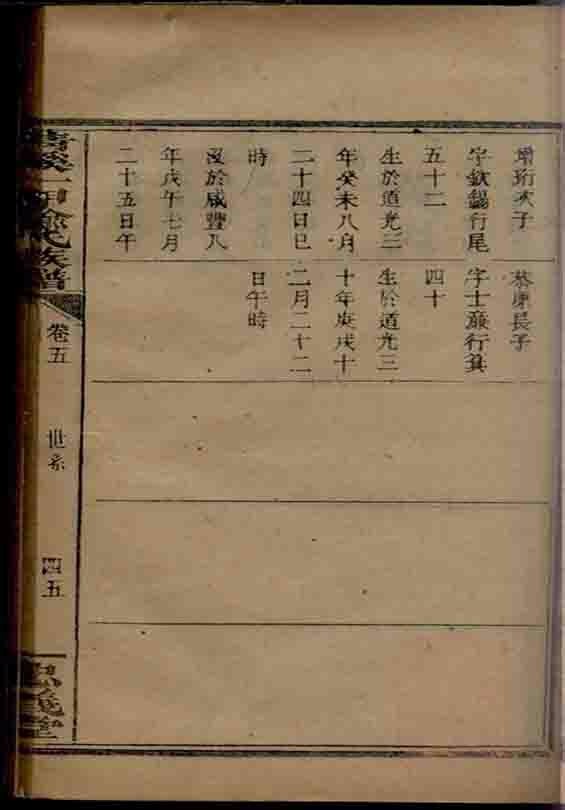 增珩次子
字欽錫行尾
五十二
生於道光三
年癸未八月
二十四日巳
時
沒於咸豐八
年戊午七月
二十五日午
長子
字士巖行箕
四十
生於道光三
十年庚戌十
二月二十二
日午時
一甲 氏族譜
卷五
世系
四五
義堂